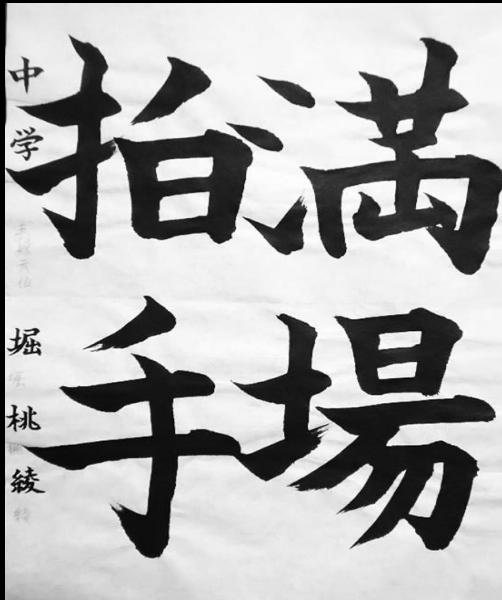 満場
拍手
中学 堀桃綾